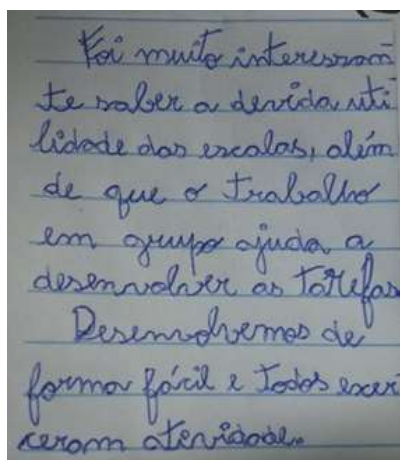 Foi muito interessan
te saber a devida uti
lidade das escalas, além
de que o trabalho
em grupo ajuda a
desenvolver as tarefas
Desenvolvemos de
forma fácil e todos exer
ceram atividade.